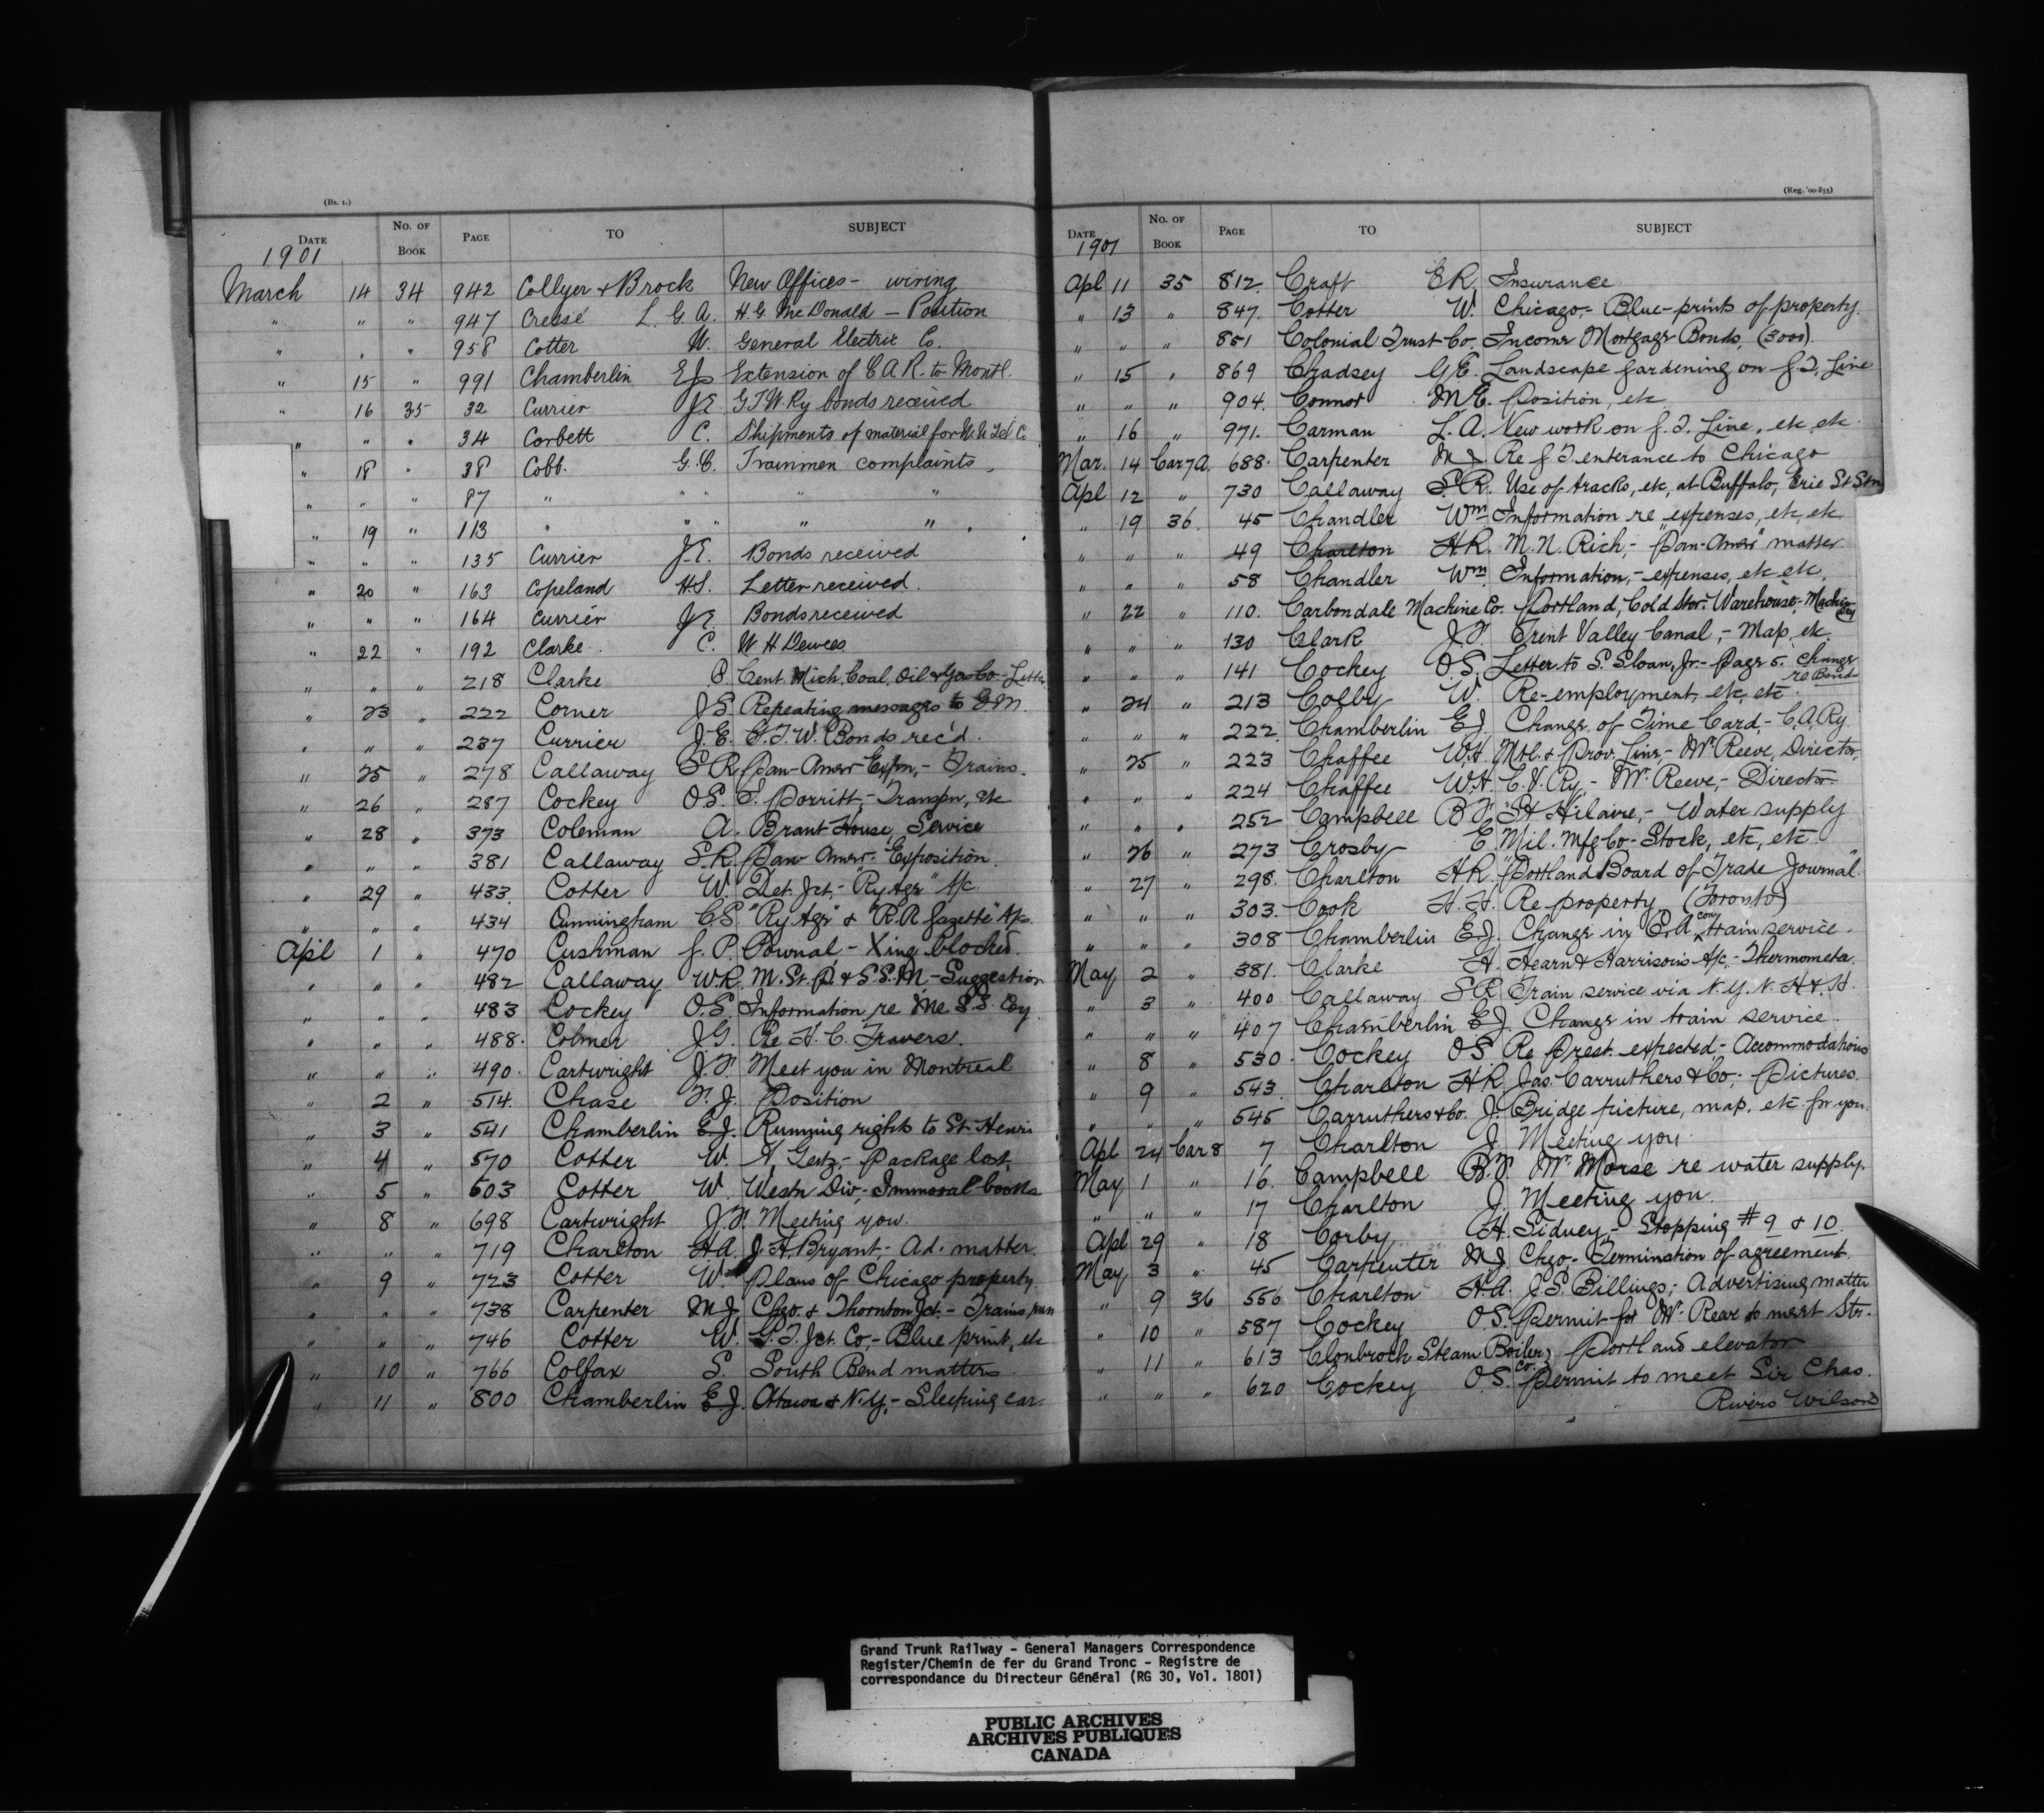 (Bs. 1.)
DATE No. OF BOOK PAGE TO SUBJECT
1901
March 14 34 942 Collyer & Brock New Offices - wiring
" " " 947 Cressé L. G. A. H. G. McDonald - Position
" " " 958 Cotter W. General Electric Co.
" 15 " 991 Chamberlin E J Extension of C. A. R. to Montl.
" 16 35 32 Currier J E G T W Ry bonds received
" " " 34 Corbett C. Shipments of material for Co
" 18 " 38 Cobb. G. C. Trainmen complaints
" " " 87 " " " " "
" 19 " 113 " " " " "
" " " 135 Currier J. E. Bonds received
" 20 " 163 Copeland H. S. Letter received.
" " " 164 Currier J E Bonds received
" 22 " 192 Clarke. C. W H Dewees
" " " 218 Clarke Cent. Mich. Coal, Oil & Gas Co - Letter
" 23 " 222 Corner J S Repeating messages to G. M.
" " " 237 Currier J. E. G. T. W. Bonds rec'd.
" 25 " 278 Callaway S R Pan-Amer Expn, - Trains.
" 26 " 287 Cockey O S. Porritt, - Transpn, etc
" 28 " 373 Coleman A. Brant House, Service
" " " 381 Callaway S. R. Pan Amer. Exposition.
" 29 " 433. Cotter W. Det. Jct, - "Ry Age" A/c
" " " 434 Cunningham C. S. "Ry Age" & "R. R. Gazette" A/cs.
Apl 1 " 470 Cushman J. P. Pownal - Xing blocked.
" " " 482 Callaway W. R. M. St. P. & S S. M. - Suggestion
" " " 483 Cockey O. S. Information re Me S. S. Coy.
" " " 488. Colmer J G. Re H. C. Travers.
" " " 490. Cartwright J. F. Meet you in Montreal
" 2 " 514. Chase F. J. Position
" 3 " 541 Chamberlin E. J. Running rights to St. Henri
" 4 " 570 Cotter W. Getz, - Package lost
" 5 " 603 Cotter W. Westn Div, - Immoral books
" 8 " 698 Cartwright J. F. Meeting you.
" " " 719 Charlton H A. J. H. Bryant, - Ad. matter.
" 9 " 723 Cotter W. Plans of Chicago property.
" " " 738 Carpenter M J Chgo. & Thornton Jct. - Trains run
" " " 746 Cotter W. G. T. Jct. Co, - Blue print, etc
" 10 " 766 Colfax S. South Bend matters.
" 11 " 800 Chamberlin E. J. Ottawa & N. Y, - Sleeping car.
(Reg. '00-855)
DATE No. OF BOOK PAGE TO SUBJECT
1901
Apl 11 35 812. Craft E R. Insurance
" 13 " 847. Cotter W. Chicago, - Blue-prints of property.
" " " 851 Colonial Trust Co. Income Mortgage Bonds, (3000).
" 15 " 869 Chadsey G. E. Landscape gardening on G. T. Line
" " " 904. Connor M E. Position, etc
" 16 " 971. Carman L. A. New work on G. T. Line, etc, etc
Mar. 14 Car 7A. 688. Carpenter M J. Re G T entrance to Chicago
Apl 12 " 730 Callaway S. R. Use of tracks, etc, at Buffalo, Erie St Stn
" 19 36. 45 Chandler Wm. Information re expenses, etc, etc
" " " 49 Charlton H R. M. N. Rich, - "Pan-Amer" matter.
" " " 58 Chandler Wm. Information, - expenses, etc etc.
" 22 " 110. Carbondale Machine Co. Portland, Cold Stor. Warehouse, - Machinery
" " " 130 Clark J. F. Trent Valley Canal, - Map, etc.
" " " 141 Cockey O. S. Letter to S. Sloan, Jr. - Page 5. change re Bond
" 24 " 213 Colby W. Re-employment, etc, etc.
" " " 222. Chamberlin E J. Change of Time Card, - C. A. Ry.
" 25 " 223 Chaffee W. H. Mtl. & Prov. Line, - Mr Reeve, Director.
" " " 224 Chaffee W. H. C. V. Ry, - Mr. Reeve, - Director
" " " 252 Campbell B F St Hilaire, - Water supply
" 26 " 273 Crosby E. Mil. Mfg Co - Stock, etc, etc
" 27 " 298. Charlton H R. "Portland Board of Trade Journal".
" " " 303. Cook H. H. Re property (Toronto)
" " " 308 Chamberlin E. J. Change in C. A. con. train service.
May 2 " 381. Clarke H. Hearn & Harrison's A/c, - Thermometa.
" 3 " 400 Callaway S R Train service via N. Y. N. H & H.
" " " 407 Chamberlin E J. Change in train service.
" 8 " 530. Cockey O S. Re Prest. expected - Accommodations
" 9 " 543. Charlton H R. Jas. Carruthers & Co, - Pictures.
" " " 545 Carruthers & Co. J. Bridge picture, map, etc for you.
Apl 24 Car 8 7 Charlton J. Meeting you.
May 1 " 16. Campbell B. F. Mr. Morse re water supply.
" " " 17 Charlton J. Meeting you.
Apl 29 " 18 Corby H. Sidney, - Stopping # 9 & 10.
May 3 " 45 Carpenter M J. Chgo, - Termination of agreement.
" 9 36 556 Charlton H A. J. S. Billings; Advertising matter
" 10 " 587 Cockey O. S. Permit for Mr. Reeve to meet Str.
" 11 " 613 Clonbrock Steam Boiler Co. Portland elevator
" " " 620 Cockey O. S. Permit to meet Sir Chas. Rivers Wilson
Grand Trunk Railway - General Managers Correspondence
Register/Chemin de fer du Grand Tronc - Registre de
correspondance du Directeur Général (RG 30, Vol. 1801)
PUBLIC ARCHIVES
ARCHIVES PUBLIQUES
CANADA